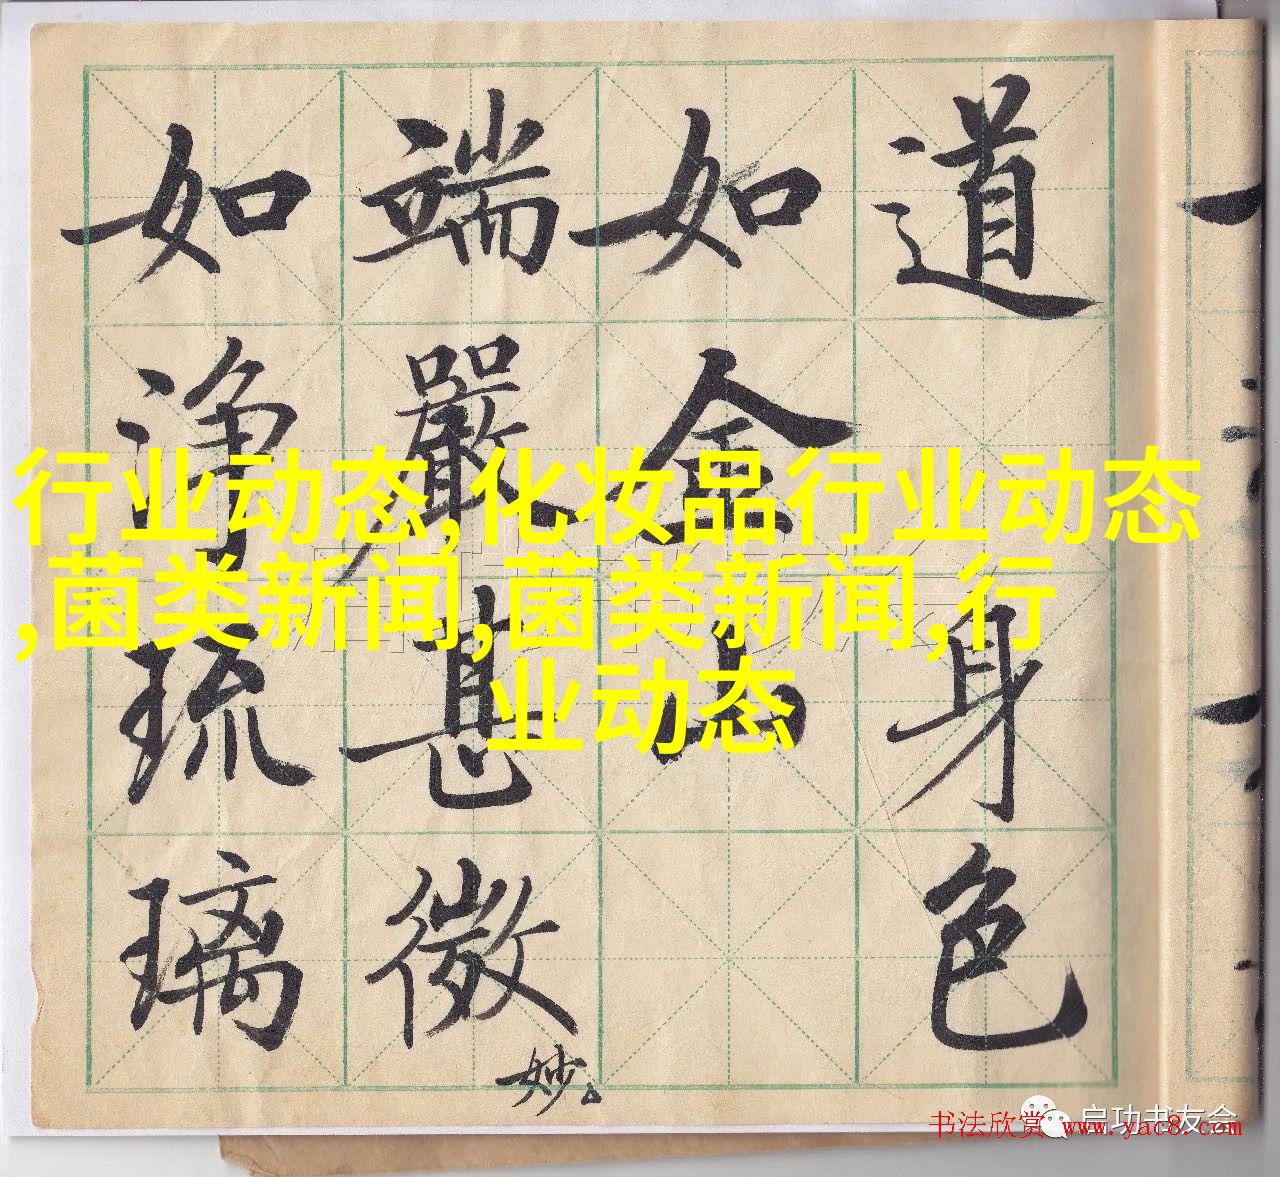 道身色
如金山
端嚴甚微妙
如淨琉璃
行业动态,化妆品行业动态
,菌类新闻,菌类新闻,行
业动态
启功书友会
书法欣赏 www.yac8.com